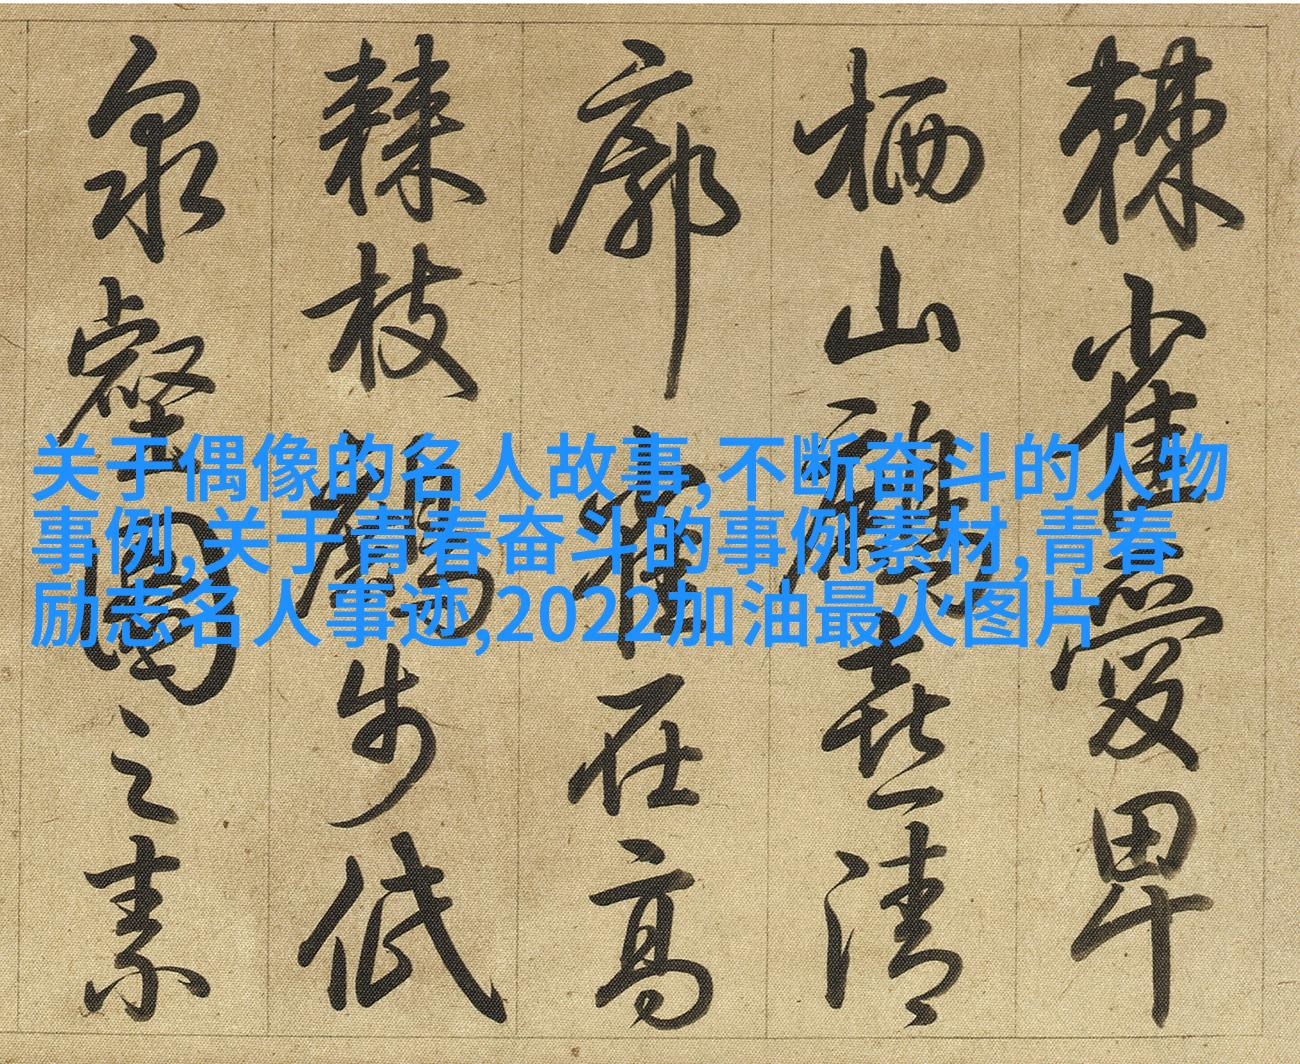 棘雀愛卑
栖山喜清
廓在高
棘枝步低
泉壑之素
关于偶像的名人故事,不断奋斗的人物
事例,关于青春奋斗的事例素材,青春
励志名人事迹,2022加油最火图片